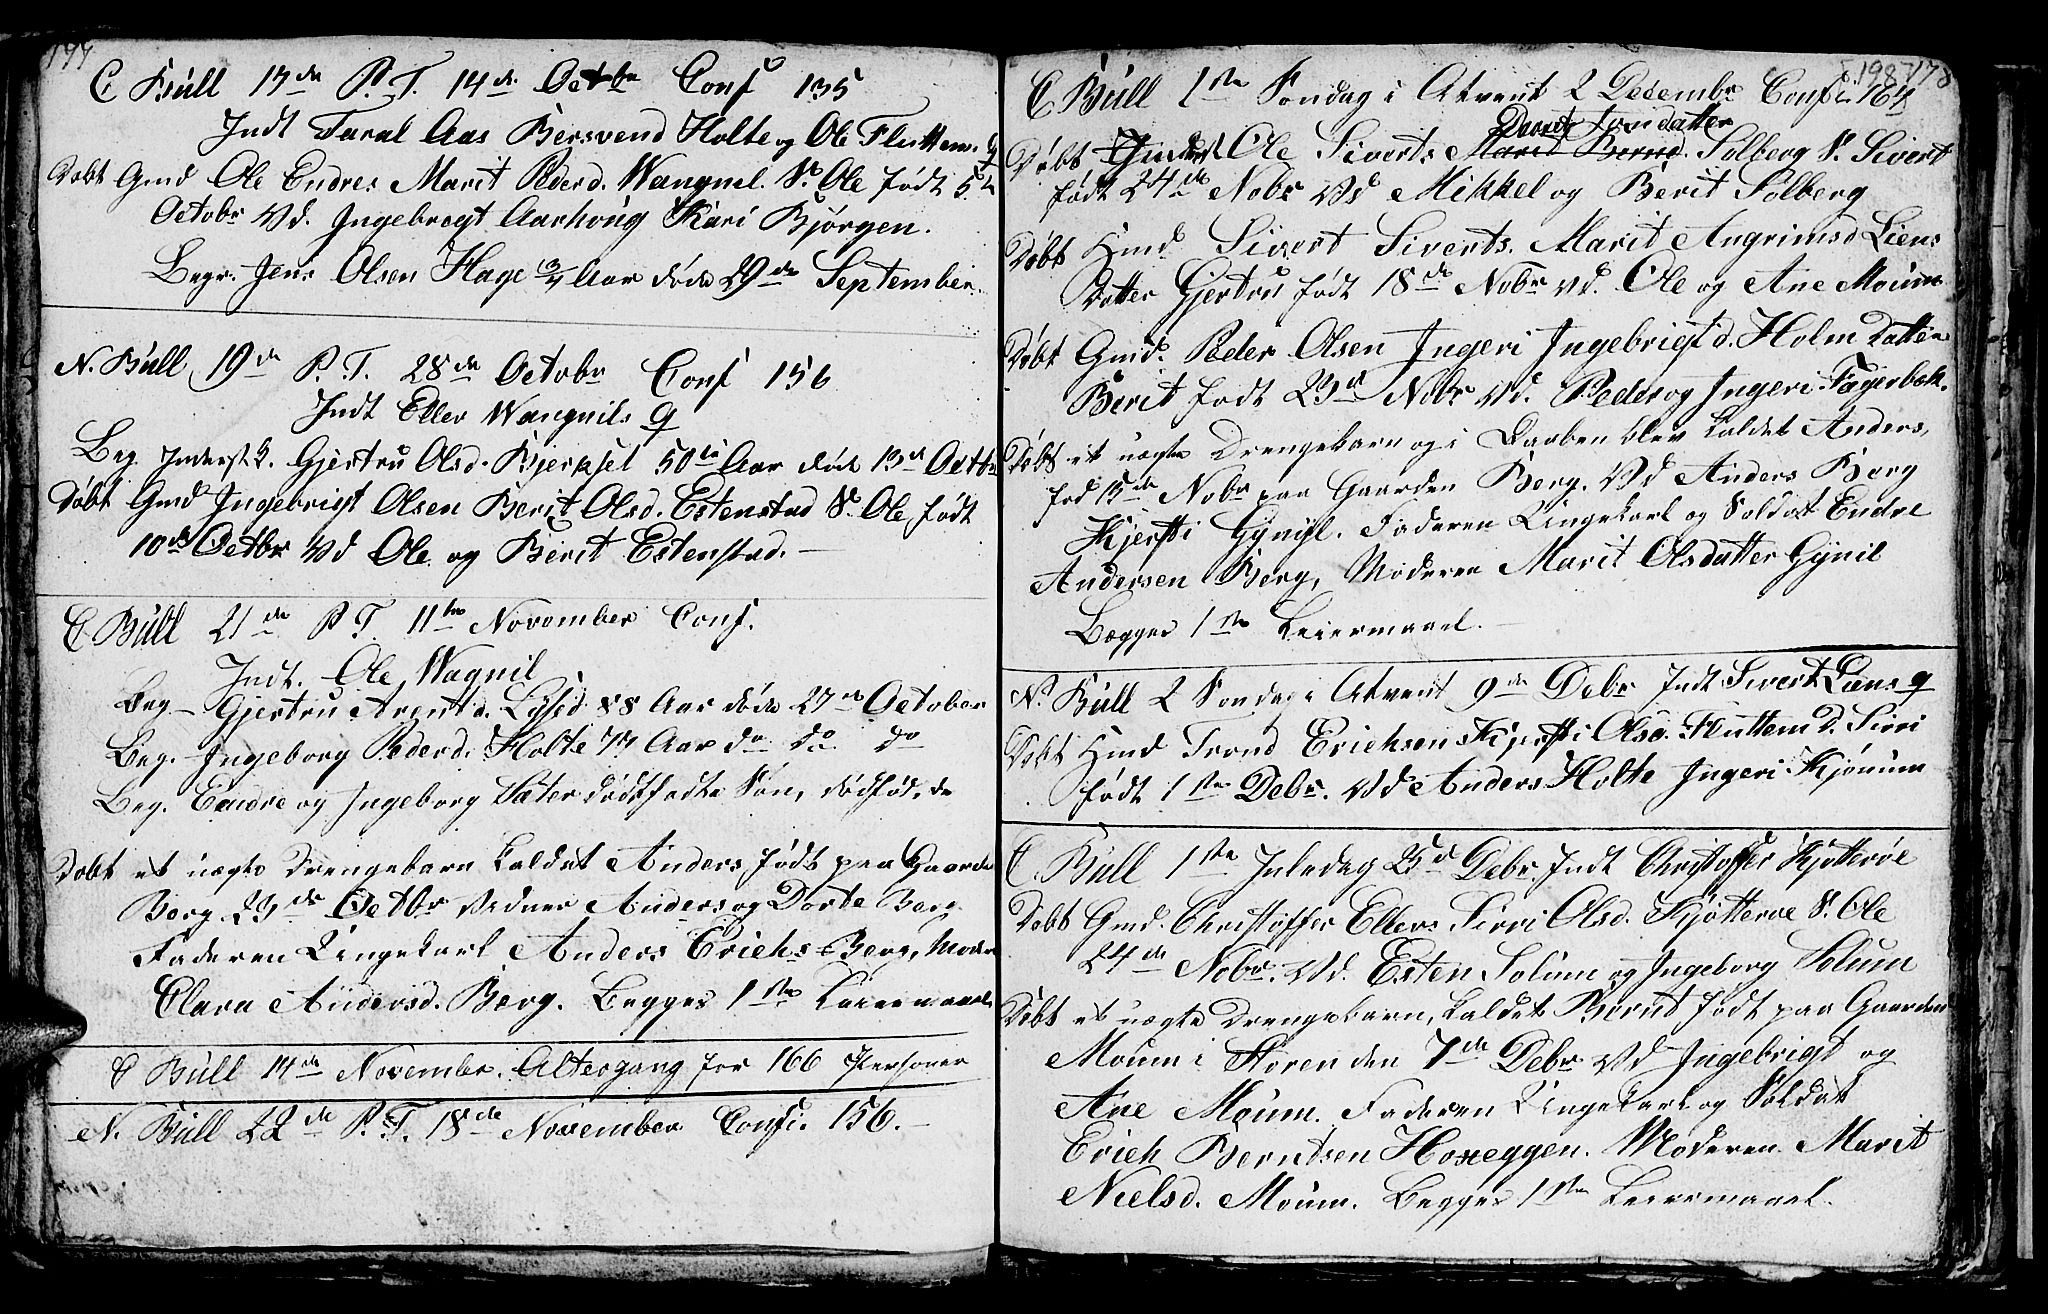 177
C Büll 17de P. T. 14de Octbr Conf 135
Indt Taral Aas Bersvend Holte og Ole Fluttem.
Døbt Gmd Ole Endres Marit Pederd. Wangnel. S. Ole født 5te
Octobr Vd. Ingebregt Aarhoug Kari Bjørgen.
Begr. Jens Olsen Hage 3/4 Aar døde 29de September.
N. Büll 19de P. T. 28de Octobr Conf 156
Indt Eller Wangnils
Beg Inderst k. Gjertru Olsd. Kjerpsel 50 Aar døde 13de Octbr
Døbt Gmd Ingebrigt Olsen Berit Olsd. Estenstad S. Ole født
10de Octbr Vd Ole og Berit Estenstad. —
C Büll 21de P T. 11te November Conf.
Indt. Ole Wagnil
Beg — Gjertru Arentd. 88 Aar døde 27de October
Beg. Ingeborg Pederd. Holte 77 Aar do do do
Beg. Endre og Ingeborg Sæter dødfødte Søn,
Døbt et uægte Drengebarn kaldet Anders født paa Gaarden
Berg 23de Octbr Vidner Anders og Dorte Berg
Faderen Ungekarl Anders Erichs Berg, Moder
Clara Andersd. Berg. Begges 1ste Leiermaael
C Büll 14de Novembr. Altergang for 166 Personer
N. Büll 22de P. T. 18de November Conf. 156. —
198 178
C Büll 1ste Søndag i Atvent 2 Decembr Conf. 164
Jondatter
Døbt Ole Siverts Marit Bernd. Solberg S. Sivert
født 24de Nobr Vd Mikkel og Berit Solberg
Døbt Hmd Sivert Siverts. Marit Angrimsd Liens
Datter Gjertru født 18de Nobr Vd. Ole og Ane Moum
Døbt Gmd. Peder Olsen Ingeri Ingebrigtd. Holm Datter
Berit født 23de Nobr Vd. Peder og Ingeri Fagerbæk.
Døbt et uægte Drengebarn og i Daaben blev kaldet Anders,
fød 13de Nobr paa Gaarden Berg. Vd Anders Berg
Kjersti Gynil. Faderen Ungekarl og Soldat Endre
Andersen Berg, Moderen Marit Olsdatter Gynil
Begges 1ste Leiermaael. —
N. Büll 2 Søndag i Atvent 9de Debr Indt Sivert Liens
Døbt Hmd Trond Erichsen Kjersti Olsd. Fluttem D. Sirri
født 1ste Debr. Vd Anders Holte Ingeri Kjønum
C. Büll 1ste Juledag 25de Debr. Indt Christoffer Kjøtterøe
Døbt Gmd. Christoffer Ellers Sirri Olsd. Kjøtteroe S. Ole
24de Nobr. Vd. Esten Solum og Ingeborg Solum
Døbt et uægte Drengebarn, kaldet Bernt født paa Gaarden
Moum i Støren den 7de Debr Vd Ingebrigt og
Ane Moum. Faderen Ungekarl og Soldat
Erich Berntsen Hoxeggen. Moderen Marit
Nielsd. Moum. Begges 1ste Leiermaael.